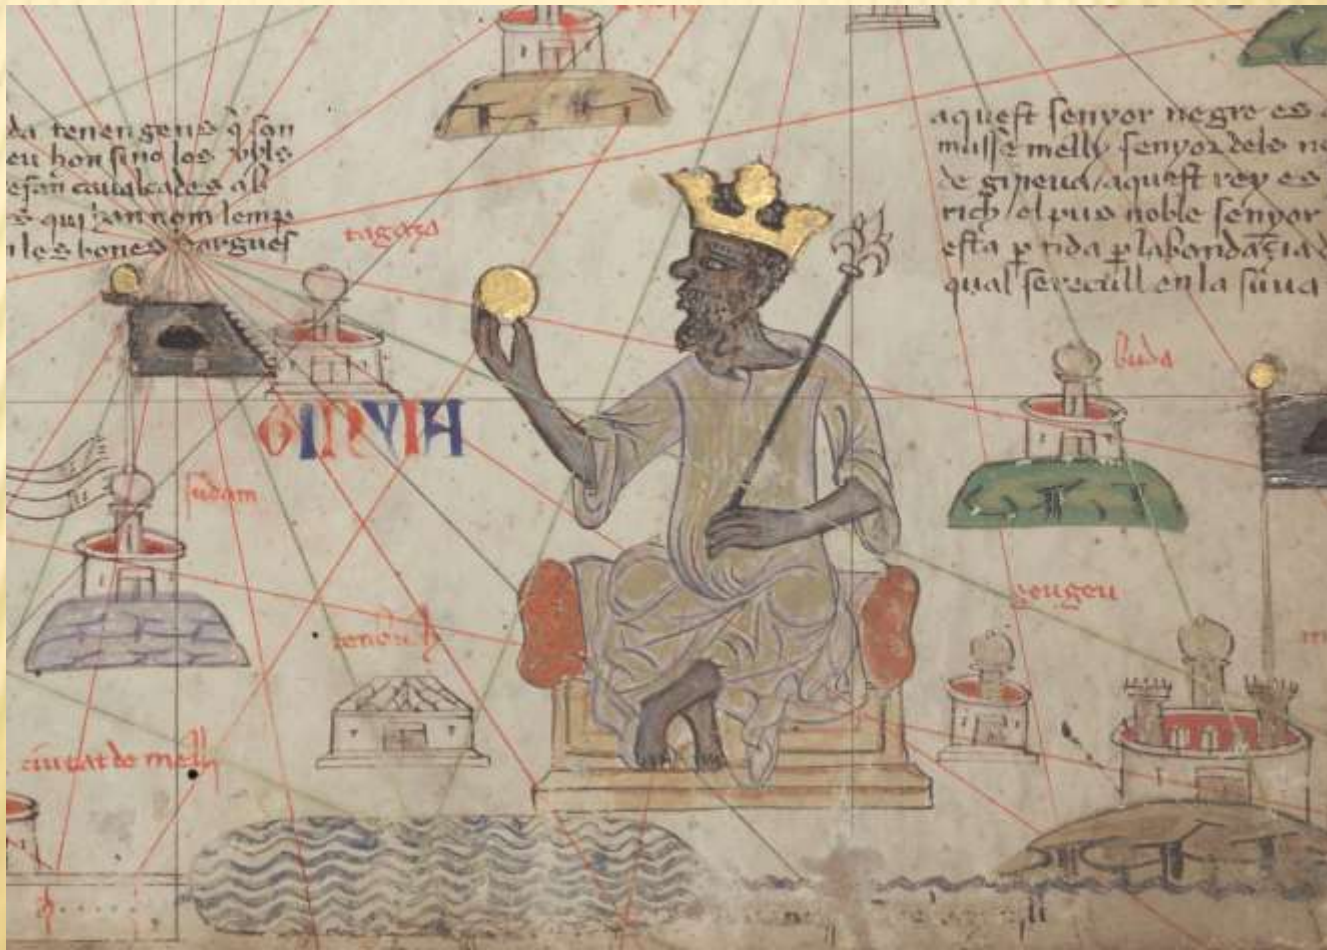 da tenen gens q̃ son
eu hon sino los uyls
e fan caualcades ab
s qui han nom lemps
les bones dargues
aquest senyor negre es
musse melly senyor dels ne
de gineua aquest rey es
rich el pus noble senyor
esta ptida p labondaçia d
qual se recull en la suua
tagaza
buda
GINVIA
sudam
geugeu
tenbuch
ciutat de melly